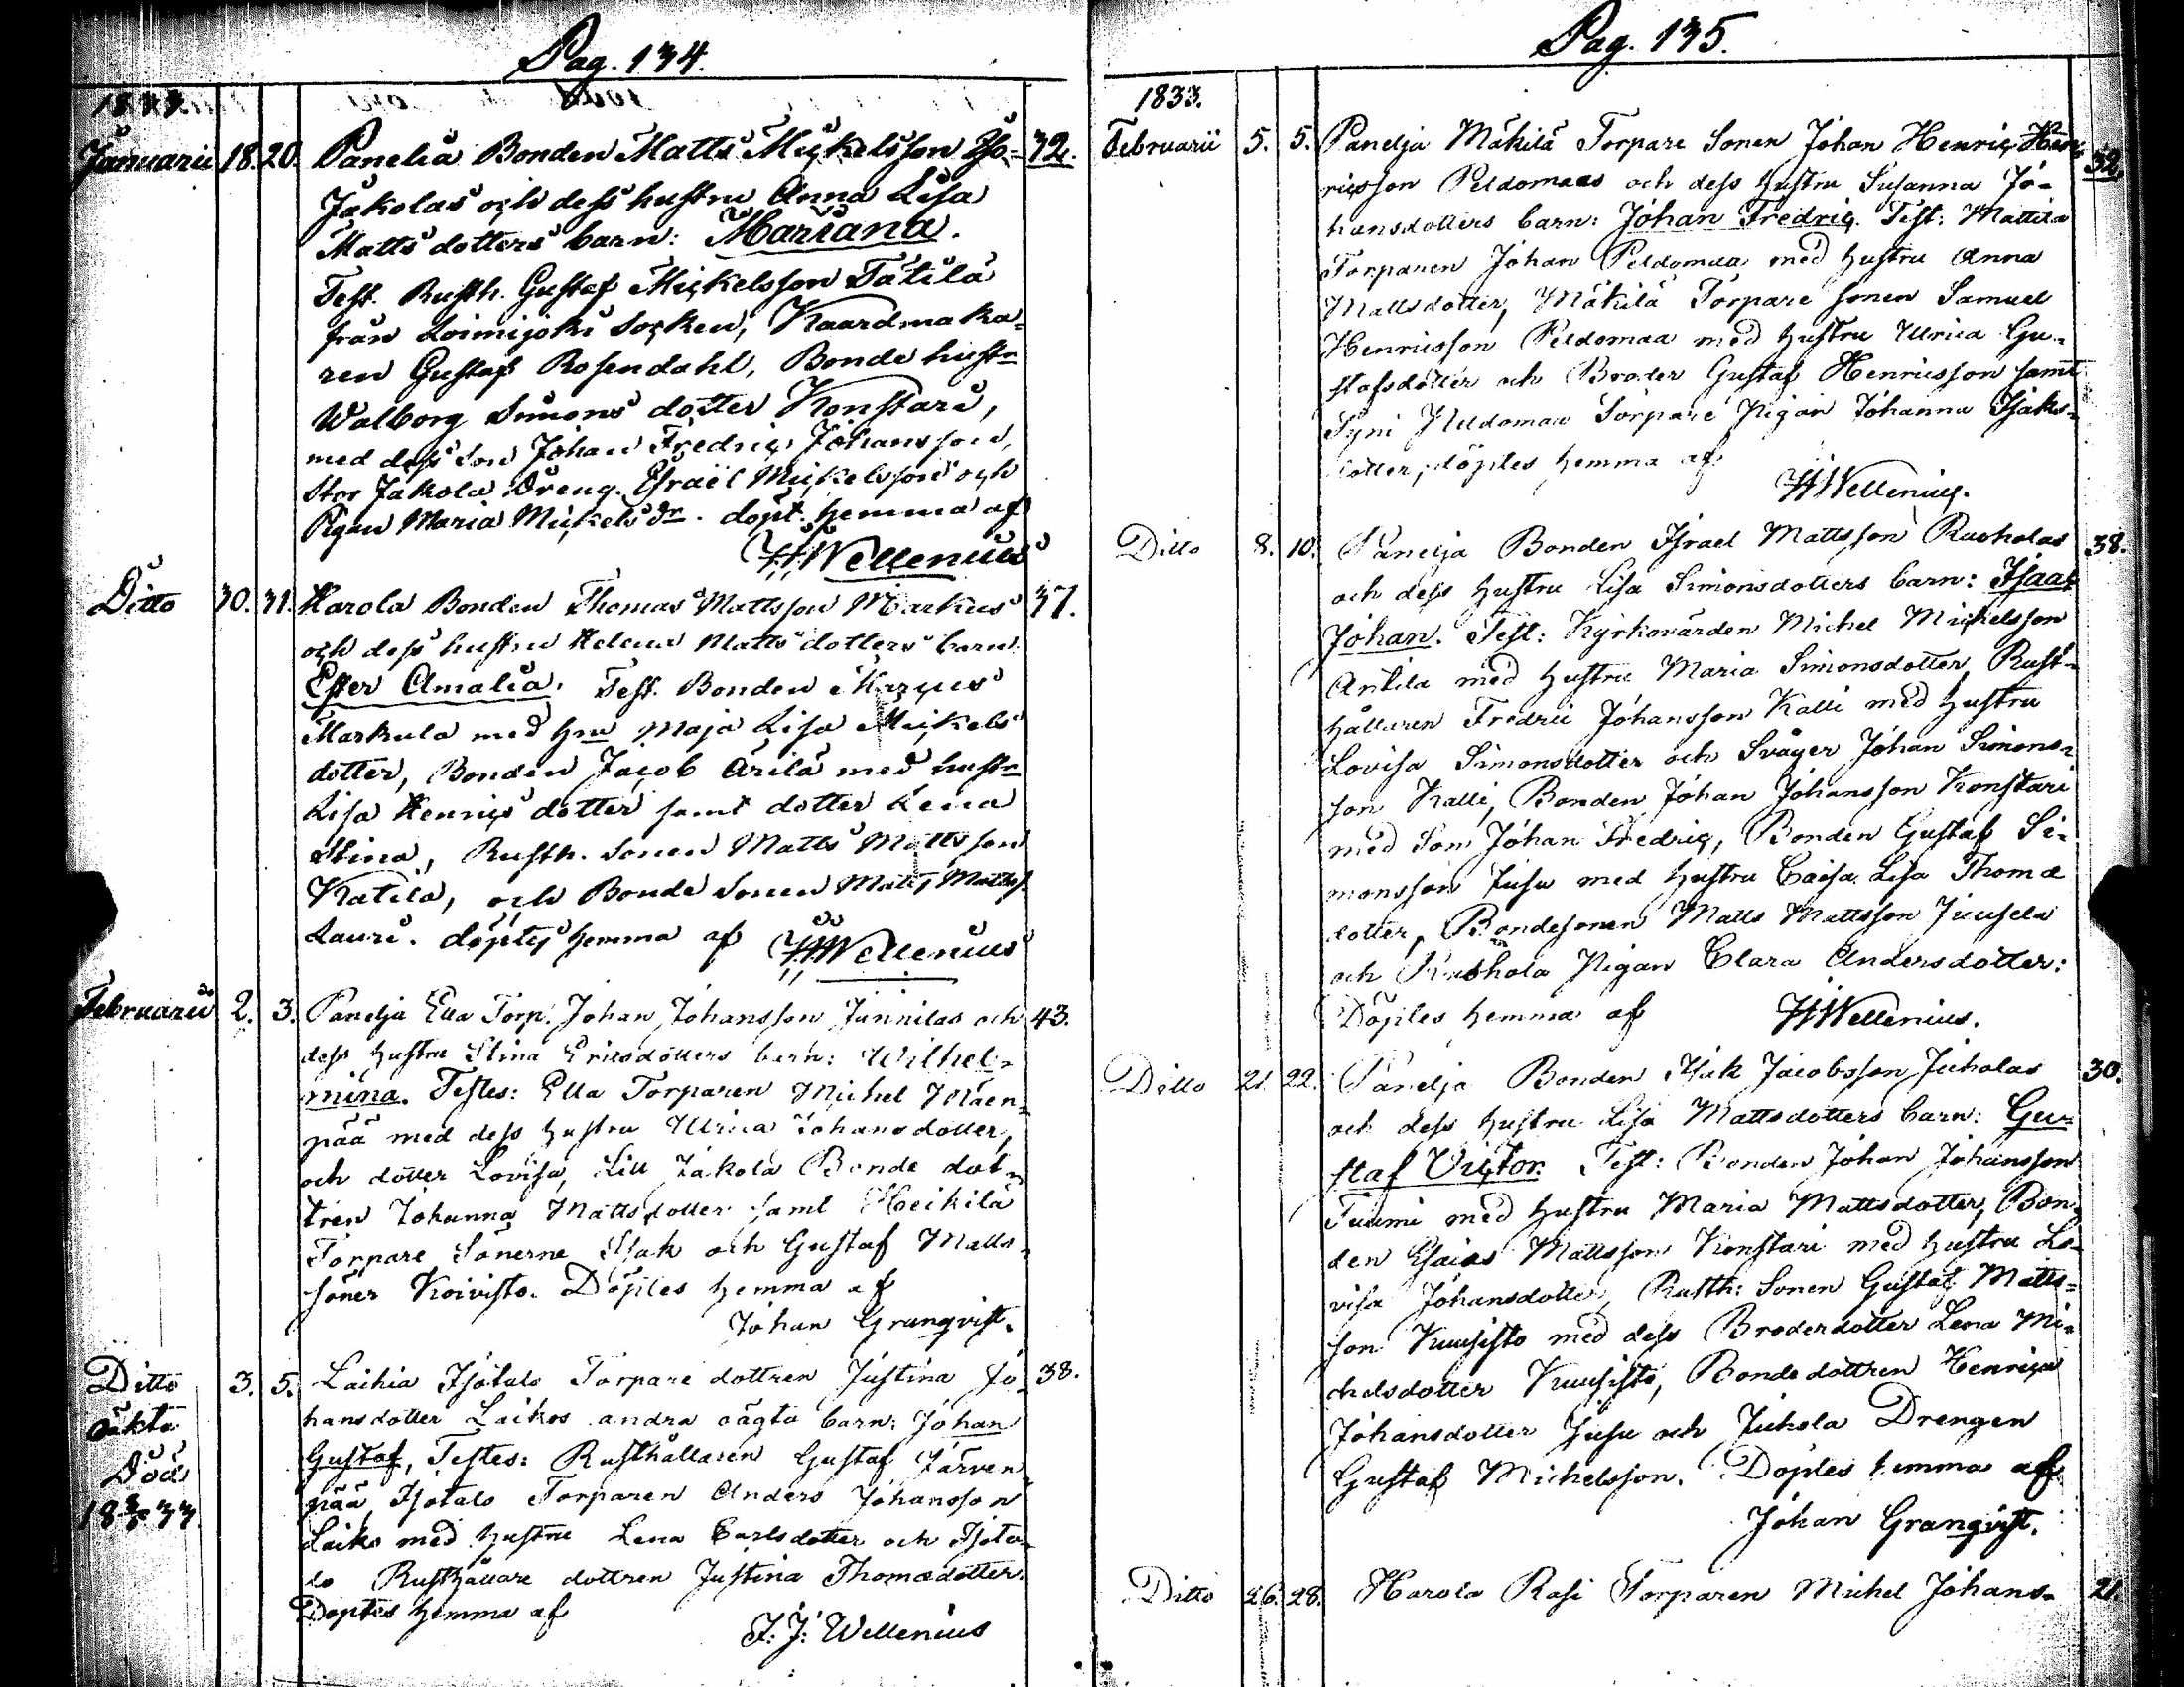 Pag. 134.
1833.
Januarii 18. 20. Panelia Bonden Matts Mickelsson Iso- 32.
Jakolas och dess hustru Anna Lisa
Matts dotters barn: Mariana.
Test. Rusth. Gustaf Mickelsson Tätilä
från Loimijoki Socken, Kaardmaka-
ren Gustaf Rosendahl, Bonde hustr
Walborg Simons dotter Konstari,
med dess Son Johan Fredric Johansson,
Stor Jakola Dreng. Israel Mickelsson och
Pigan Maria Mickelsdr. döpt hemma af
HWellenius
Ditto 30. 31. Harola Bonden Thomas Mattsson Markus 37.
och dess hustru Helena Matts dotters barn
Ester Amalia. Test. Bonden Marcus
Markula med hru Maja Lisa Mickels
dotter, Bonden Jacob Arila med hustr
Lisa Henrics dotter samt dotter Lena
Stina, Rusth. Sonen Matts Mattsson
Katila, och Bonde Sonen Matts Matts.
Lauri. döptes hemma af HWellenius
Februarii 2. 3. Panelja Ella Torp. Johan Johansson Junnilas och 43.
dess hustru Stina Ericsdotters barn: Wilhel-
mina. Testes: Ella Torparen Michel Mäen-
pää med dess hustru Ulrica Johansdotter,
och dotter Lovisa, Lill Jakola Bonde dot-
tren Johanna Mattsdotter samt Heikilä
Torpare Sönerne Isak och Gustaf Matts-
söner Koivisto. Döptes hemma af
Johan Granqvist.
Ditto 3. 5. Laihia Isotalo Torpare dottren Justina Jo- 38.
oäkta
Död
18 3/5 33.
hansdotter Laikos andra oägta barn: Johan
Gustaf, Testes: Rusthållaren Gustaf Järven-
pää, Isotalo Torparen Anders Johansson
Laiko med hustru Lena Carlsdotter och Isota-
lo Rusthållare dottren Justina Thomædotter.
Döptes hemma af
F: J: Wellenius
Pag. 135.
1833.
Februarii 5. 5. Panelja Mäkilä Torpare Sonen Johan Henric Hen- 32.
ricsson Peldomaas och dess hustru Susanna Jo-
hansdotters barn: Johan Fredric. Test: Mattila
Torparen Johan Peldomaa med hustru Anna
Mattsdotter, Mäkilä Torpare sonen Samuel
Henricsson Peldomaa med hustru Ulrica Gu-
stafsdotter och Broder Gustaf Henricsson samt
Peldomaa Torpare Pigan Johanna Isaks-
dotter, döptes hemma af
HWellenius.
Ditto 8. 10. Panelja Bonden Israel Mattsson Ruoholas 38.
och dess hustru Lisa Simonsdotters barn: Isaak
Johan. Test: Kyrkovärden Michel Mickelsson
Antila med hustru Maria Simonsdotter, Rust-
hållaren Fredric Johansson Kalli med hustru
Lovisa Simonsdotter och Svåger Johan Simons-
son Kalli, Bonden Johan Johansson Konstari
med Son Johan Fredric, Bonden Gustaf Si-
monsson Jusu med hustru Caisa Lisa Thomæ
dotter, Bondesonen Matts Mattsson Juusela
och Ruohola Pigan Clara Andersdotter:
Döptes hemma af HWellenius.
Ditto 21. 22. Panelja Bonden Isak Jacobsson Jukolas 30.
och dess hustru Lisa Mattsdotters barn: Gu-
staf Victor. Test: Bonden Johan Johansson
Tuumi med hustru Maria Mattsdotter, Bon-
den Esaias Mattsson Konstari med hustru Lo-
visa Johansdotter, Rustth: Sonen Gustaf Matts-
son Kuusisto med dess Brodersdotter Lena Mi-
chelsdotter Kuusisto, Bondedottren Henrica
Johansdotter Jusu och Jukola Drengen
Gustaf Michelsson. Döptes hemma af
Johan Granqvist.
Ditto 26. 28. Harola Rasi Torparen Michel Johans- 21.